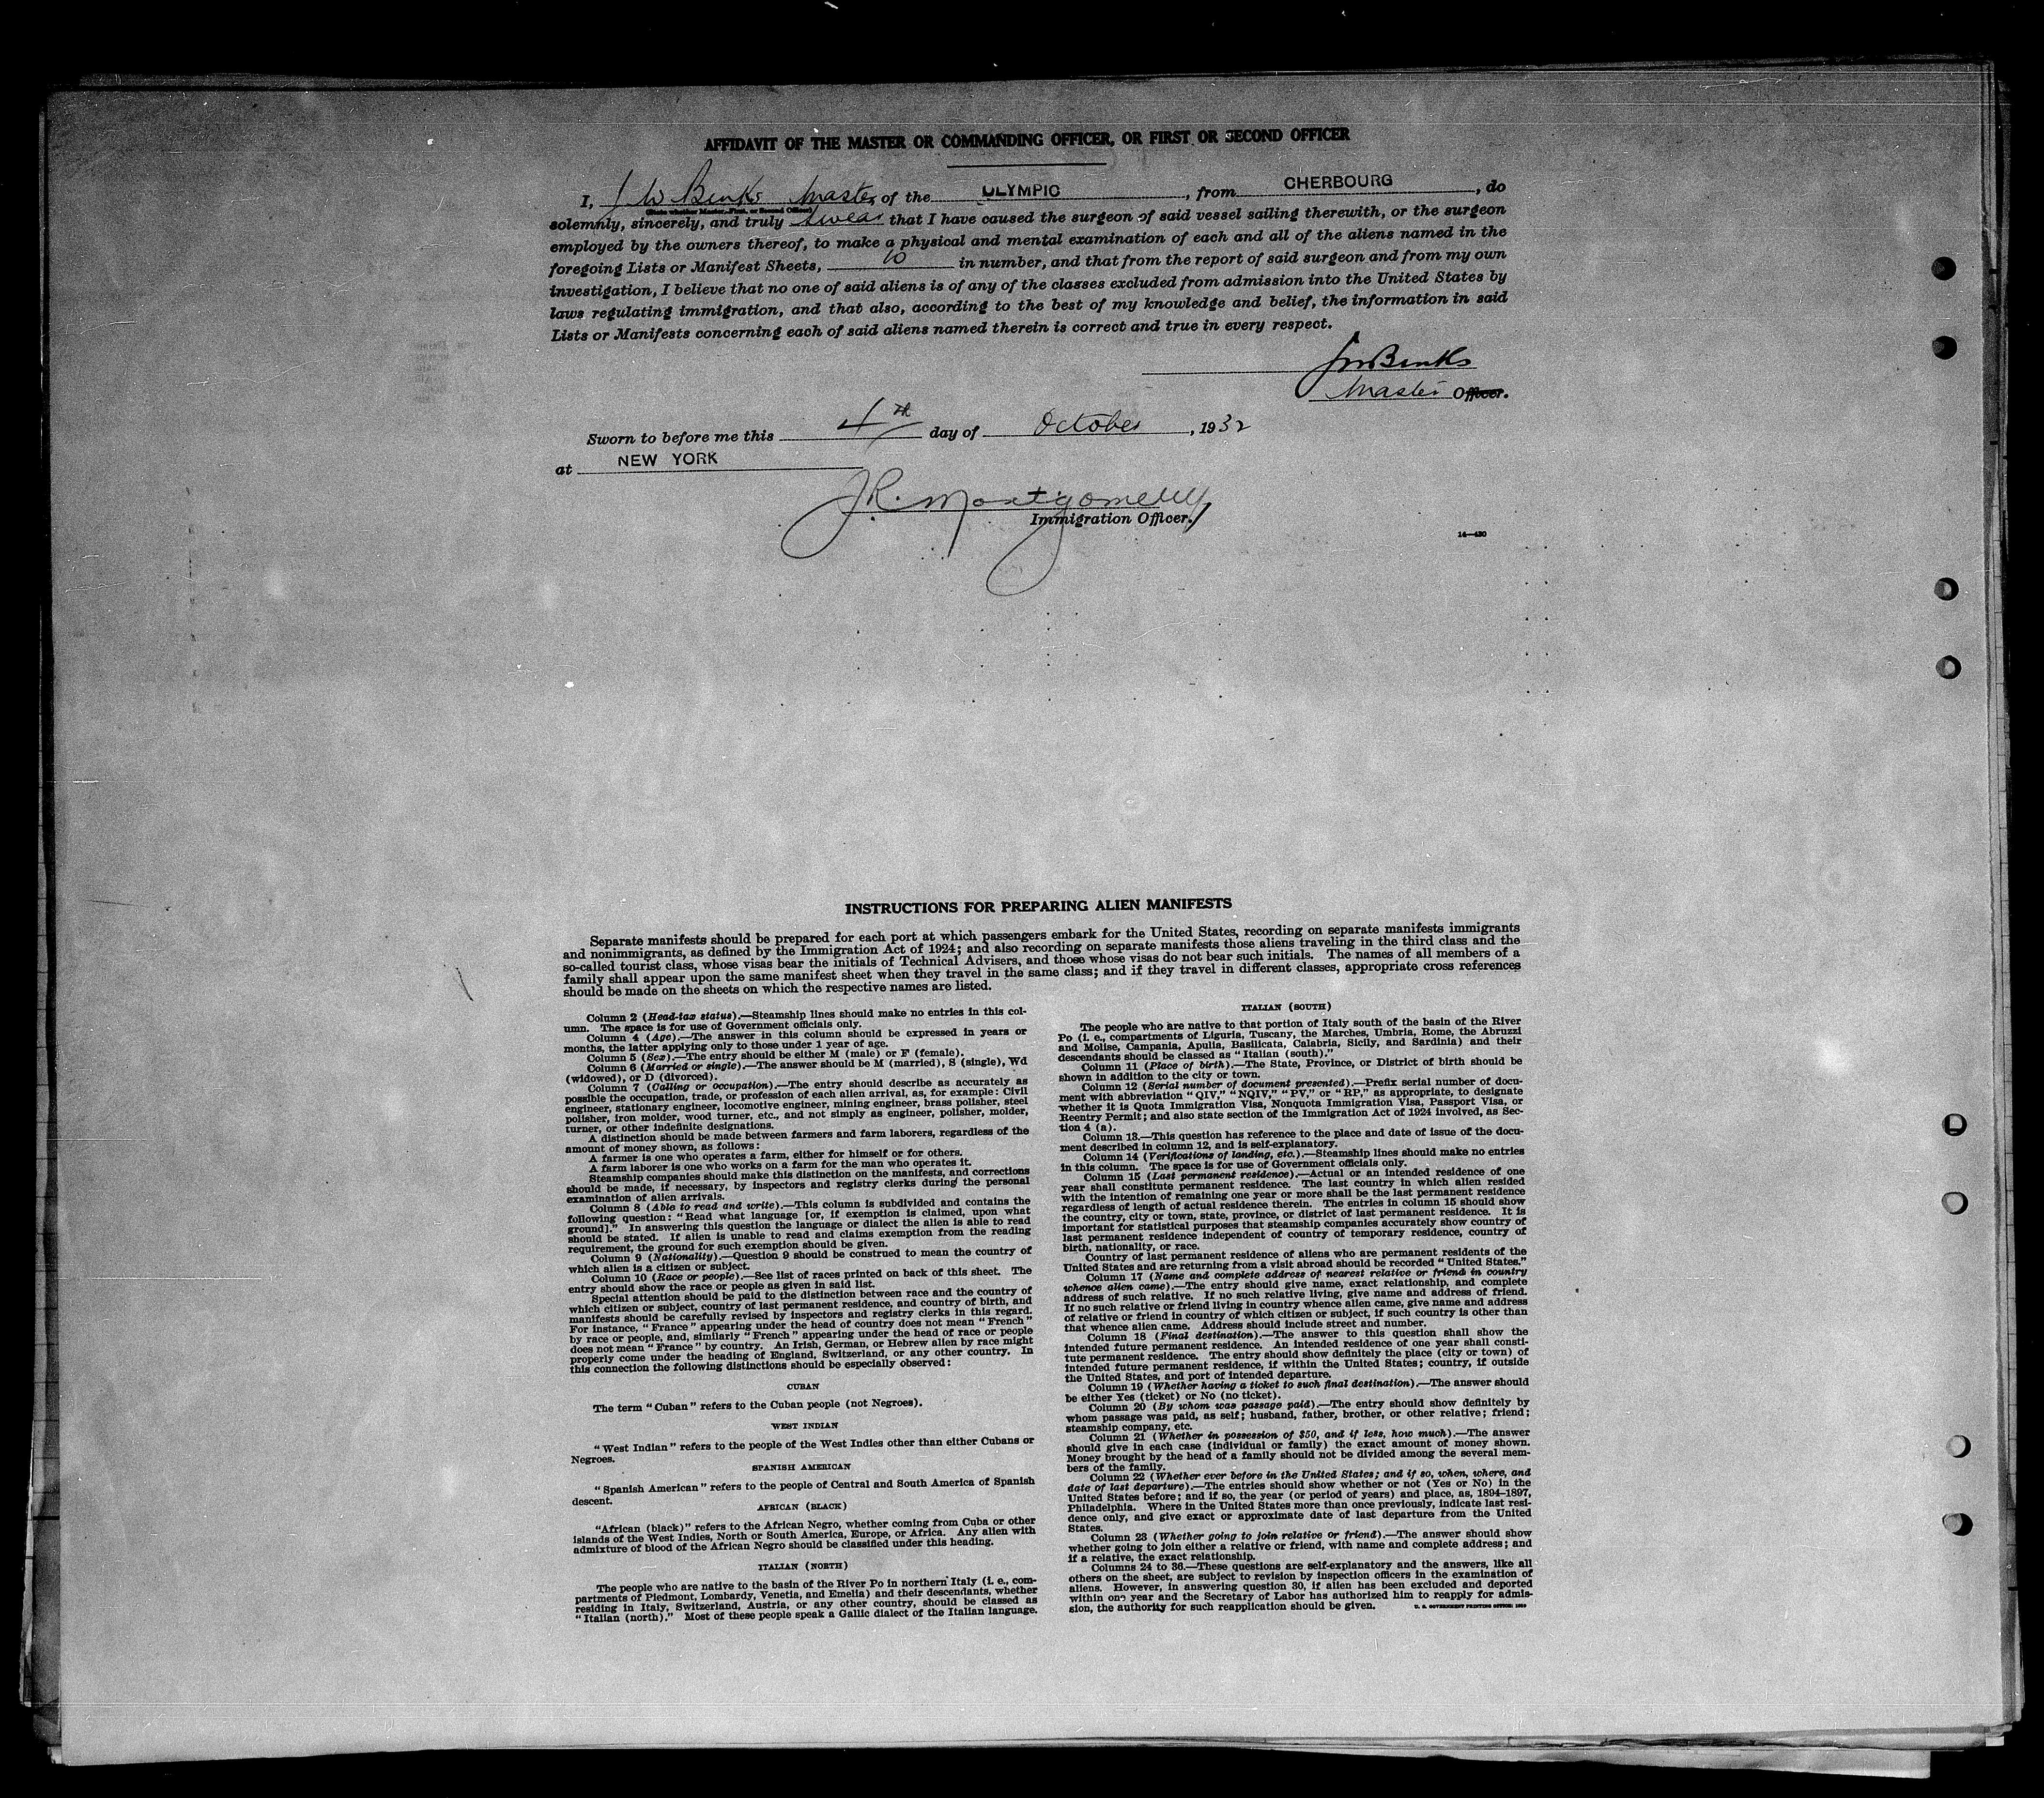 AFFIDAVIT OF THE MASTER OR COMMANDING OFFICER, OR FIRST OR SECOND OFFICER
I, J W Binks Master of the OLYMPIC, from CHERBOURG, do
(State whether Master, First, or Second Officer)
solemnly, sincerely, and truly swear that I have caused the surgeon of said vessel sailing therewith, or the surgeon
employed by the owners thereof, to make a physical and mental examination of each and all of the aliens named in the
foregoing Lists or Manifest Sheets, 10 in number, and that from the report of said surgeon and from my own
investigation, I believe that no one of said aliens is of any of the classes excluded from admission into the United States by
laws regulating immigration, and that also, according to the best of my knowledge and belief, the information in said
Lists or Manifests concerning each of said aliens named therein is correct and true in every respect.
JW Binks
Master Officer.
Sworn to before me this 4th day of October, 1932
at NEW YORK
J.R. Montgomery
Immigration Officer.
14—430
INSTRUCTIONS FOR PREPARING ALIEN MANIFESTS
Separate manifests should be prepared for each port at which passengers embark for the United States, recording on separate manifests immigrants
and nonimmigrants, as defined by the Immigration Act of 1924; and also recording on separate manifests those aliens traveling in the third class and the
so-called tourist class, whose visas bear the initials of Technical Advisers, and those whose visas do not bear such initials. The names of all members of a
family shall appear upon the same manifest sheet when they travel in the same class; and if they travel in different classes, appropriate cross references
should be made on the sheets on which the respective names are listed.
Column 2 (Head-tax status).—Steamship lines should make no entries in this col-
umn. The space is for use of Government officials only.
Column 4 (Age).—The answer in this column should be expressed in years or
months, the latter applying only to those under 1 year of age.
Column 5 (Sex).—The entry should be either M (male) or F (female).
Column 6 (Married or single).—The answer should be M (married), S (single), Wd
(widowed), or D (divorced).
Column 7 (Calling or occupation).—The entry should describe as accurately as
possible the occupation, trade, or profession of each alien arrival, as, for example: Civil
engineer, stationary engineer, locomotive engineer, mining engineer, brass polisher, steel
polisher, iron molder, wood turner, etc., and not simply as engineer, polisher, molder,
turner, or other indefinite designations.
A distinction should be made between farmers and farm laborers, regardless of the
amount of money shown, as follows:
A farmer is one who operates a farm, either for himself or for others.
A farm laborer is one who works on a farm for the man who operates it.
Steamship companies should make this distinction on the manifests, and corrections
should be made, if necessary, by inspectors and registry clerks during the personal
examination of alien arrivals.
Column 8 (Able to read and write).—This column is subdivided and contains the
following question: "Read what language [or, if exemption is claimed, upon what
ground]." In answering this question the language or dialect the alien is able to read
should be stated. If alien is unable to read and claims exemption from the reading
requirement, the ground for such exemption should be given.
Column 9 (Nationality).—Question 9 should be construed to mean the country of
which alien is a citizen or subject.
Column 10 (Race or people).—See list of races printed on back of this sheet. The
entry should show the race or people as given in said list.
Special attention should be paid to the distinction between race and the country of
which citizen or subject, country of last permanent residence, and country of birth, and
manifests should be carefully revised by inspectors and registry clerks in this regard.
For instance, "France" appearing under the head of country does not mean "French"
by race or people, and, similarly "French" appearing under the head of race or people
does not mean "France" by country. An Irish, German, or Hebrew alien by race might
properly come under the heading of England, Switzerland, or any other country. In
this connection the following distinctions should be especially observed:
CUBAN
The term "Cuban" refers to the Cuban people (not Negroes).
WEST INDIAN
"West Indian" refers to the people of the West Indies other than either Cubans or
Negroes.
SPANISH AMERICAN
"Spanish American" refers to the people of Central and South America of Spanish
descent.
AFRICAN (BLACK)
"African (black)" refers to the African Negro, whether coming from Cuba or other
islands of the West Indies, North or South America, Europe, or Africa. Any alien with
admixture of blood of the African Negro should be classified under this heading.
ITALIAN (NORTH)
The people who are native to the basin of the River Po in northern Italy (i. e., com-
partments of Piedmont, Lombardy, Venetia, and Emelia) and their descendants, whether
residing in Italy, Switzerland, Austria, or any other country, should be classed as
"Italian (north)." Most of these people speak a Gallic dialect of the Italian language.
ITALIAN (SOUTH)
The people who are native to that portion of Italy south of the basin of the River
Po (i. e., compartments of Liguria, Tuscany, the Marches, Umbria, Rome, the Abruzzi
and Molise, Campania, Apulia, Basilicata, Calabria, Sicily, and Sardinia) and their
descendants should be classed as "Italian (south)."
Column 11 (Place of birth).—The State, Province, or District of birth should be
shown in addition to the city or town.
Column 12 (Serial number of document presented).—Prefix serial number of docu-
ment with abbreviation "QIV," "NQIV," "PV," or "RP," as appropriate, to designate
whether it is Quota Immigration Visa, Nonquota Immigration Visa, Passport Visa, or
Reentry Permit; and also state section of the Immigration Act of 1924 involved, as Sec-
tion 4 (a).
Column 13.—This question has reference to the place and date of issue of the docu-
ment described in column 12, and is self-explanatory.
Column 14 (Verifications of landing, etc.).—Steamship lines should make no entries
in this column. The space is for use of Government officials only.
Column 15 (Last permanent residence).—Actual or an intended residence of one
year shall constitute permanent residence. The last country in which alien resided
with the intention of remaining one year or more shall be the last permanent residence
regardless of length of actual residence therein. The entries in column 15 should show
the country, city or town, state, province, or district of last permanent residence. It is
important for statistical purposes that steamship companies accurately show country of
last permanent residence independent of country of temporary residence, country of
birth, nationality, or race.
Country of last permanent residence of aliens who are permanent residents of the
United States and are returning from a visit abroad should be recorded "United States."
Column 17 (Name and complete address of nearest relative or friend in country
whence alien came).—The entry should give name, exact relationship, and complete
address of such relative. If no such relative living, give name and address of friend.
If no such relative or friend living in country whence alien came, give name and address
of relative or friend in country of which citizen or subject, if such country is other than
that whence alien came. Address should include street and number.
Column 18 (Final destination).—The answer to this question shall show the
intended future permanent residence. An intended residence of one year shall consti-
tute permanent residence. The entry should show definitely the place (city or town) of
intended future permanent residence, if within the United States; country, if outside
the United States, and port of intended departure.
Column 19 (Whether having a ticket to such final destination).—The answer should
be either Yes (ticket) or No (no ticket).
Column 20 (By whom was passage paid).—The entry should show definitely by
whom passage was paid, as self; husband, father, brother, or other relative; friend;
steamship company, etc.
Column 21 (Whether in possession of $50, and if less, how much).—The answer
should give in each case (individual or family) the exact amount of money shown.
Money brought by the head of a family should not be divided among the several mem-
bers of the family.
Column 22 (Whether ever before in the United States; and if so, when, where, and
date of last departure).—The entries should show whether or not (Yes or No) in the
United States before; and if so, the year (or period of years) and place, as, 1894–1897,
Philadelphia. Where in the United States more than once previously, indicate last resi-
dence only, and give exact or approximate date of last departure from the United
States.
Column 23 (Whether going to join relative or friend).—The answer should show
whether going to join either a relative or friend, with name and complete address; and
if a relative, the exact relationship.
Columns 24 to 36.—These questions are self-explanatory and the answers, like all
others on the sheet, are subject to revision by inspection officers in the examination of
aliens. However, in answering question 30, if alien has been excluded and deported
within one year and the Secretary of Labor has authorized him to reapply for admis-
sion, the authority for such reapplication should be given.
U. S. GOVERNMENT PRINTING OFFICE: